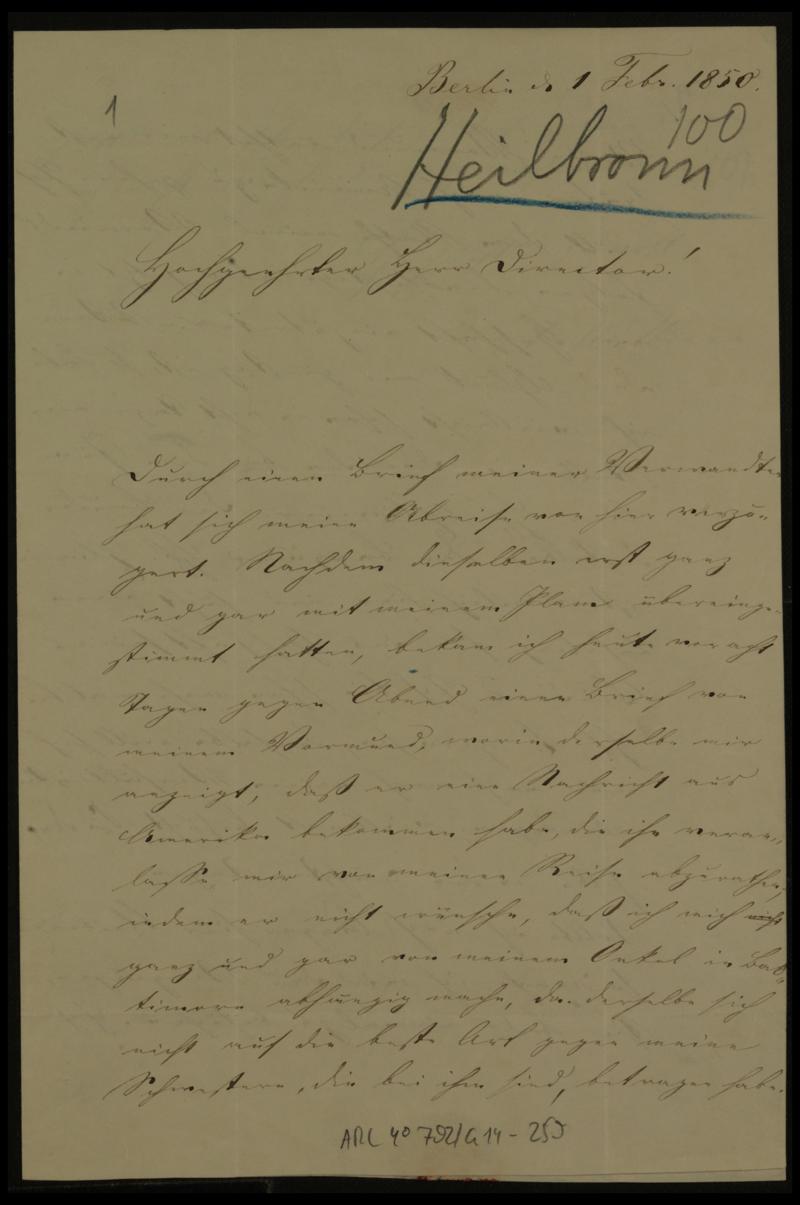 Berlin d. 1 Febr. 1850.
1
100
Heilbronn
Hochgeehrter Herr Director!
Durch einen Brief meiner Verwandten
hat sich meine Abreise von hier verzö-
gert. Nachdem dieselben erst ganz
und gar mit meinem Plane übereinge-
stimmt hatten, bekam ich heute vor acht
Tagen gegen Abend einen Brief von
meinem Vormund, worin derselbe mir
anzeigt, daß er eine Nachricht aus
Amerika bekommen habe, die ihn veran-
lasse mir von meiner Reise abzurathen,
indem er nicht wünsche, daß ich mich nicht
ganz und gar von meinem Onkel in Bal-
timore abhängig mache, da derselbe sich
nicht auf die beste Art gegen meine
Schwestern, die bei ihm sind, betragen habe.
ARC 4° 792/G 14-